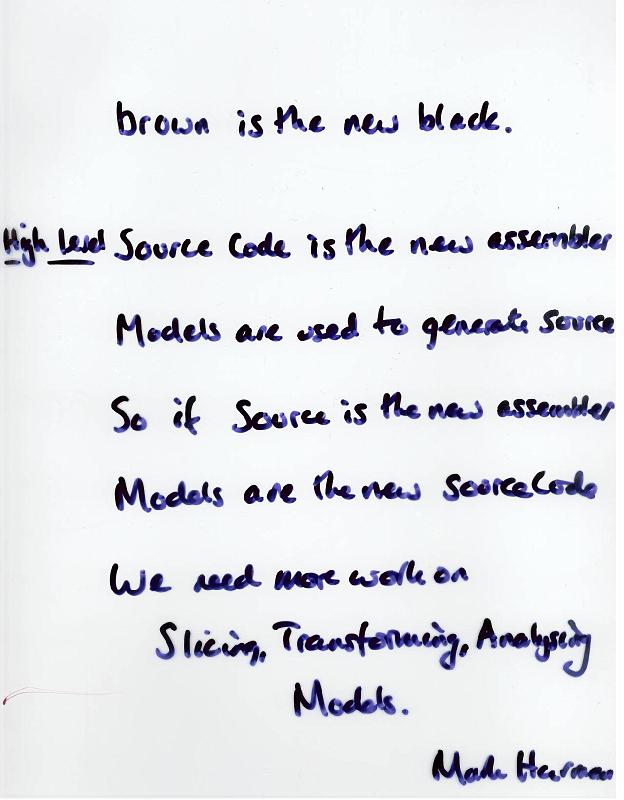 brown is the new black.
High Level Source Code is the new assembler
Models are used to generate source
So if Source is the new assembler
Models are the new Source Code
We need more work on
Slicing, Transforming, Analysing
Models.
Mark Harman